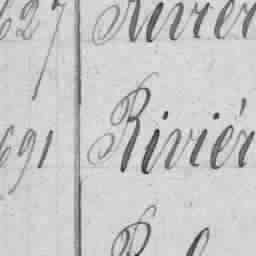 627 Rivièr
691 Rivièr